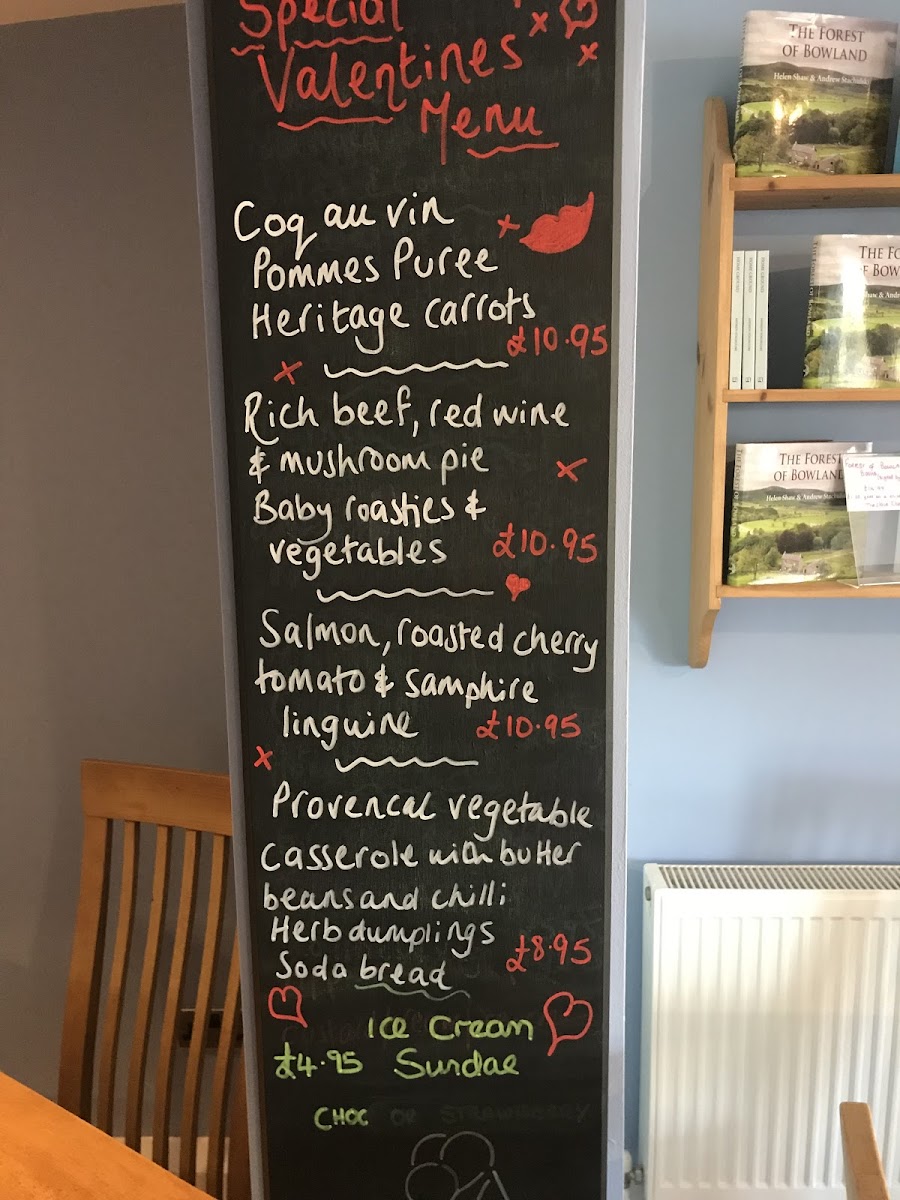 Special
Valentines
Menu
Coq au vin
Pommes Puree
Heritage carrots
£10.95
Rich beef, red wine
& mushroom pie
Baby roasties &
vegetables £10.95
Salmon, roasted cherry
tomato & samphire
linguine £10.95
Provencal vegetable
casserole with butter
beans and chilli
Herb dumplings
£8.95
Soda bread
Ice Cream
£4.95 Sundae
CHOC OR STRAWBERRY
THE FOREST
OF BOWLAND
Helen Shaw & Andrew Stachulski
THE FO
OF BOW
Helen Shaw & An
THE FOREST
OF BOWLAND
Helen Shaw & Andrew Stachulski